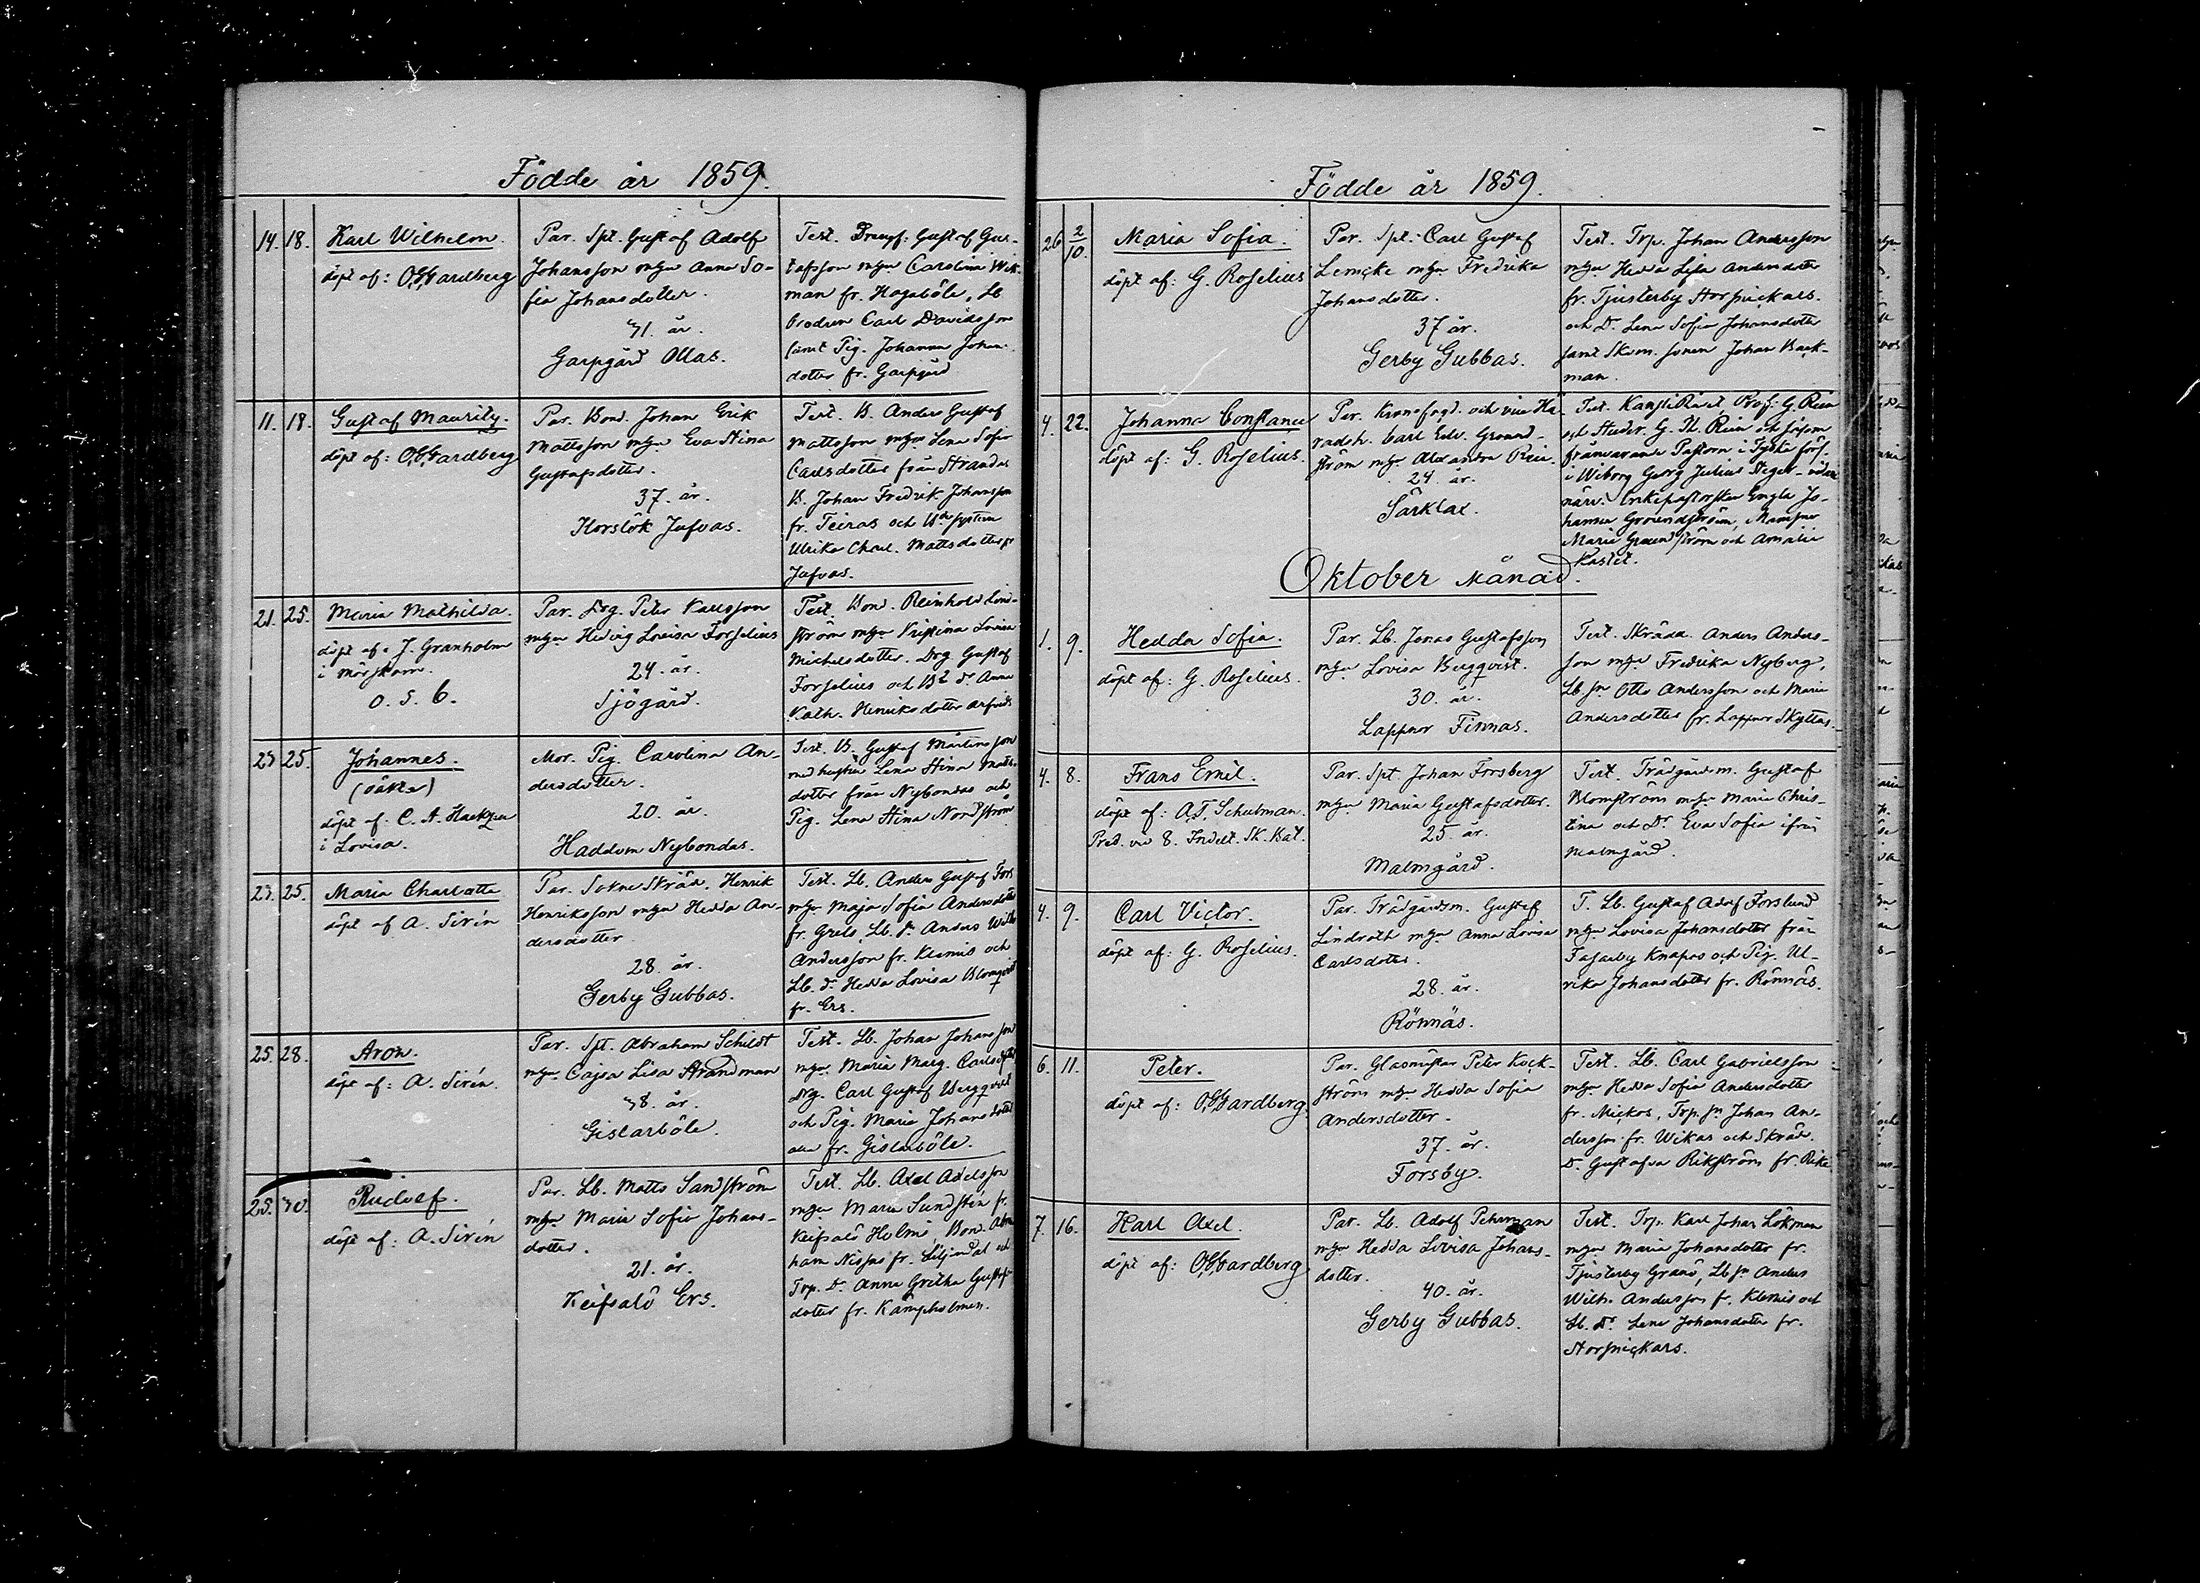 Födde år 1859.
14. 18. Karl Wilhelm.
döpt af: O. Gardberg
Par. Spt. Gustaf Adolf
Johansson mhu Anna So-
fia Johansdotter.
41. år.
Garpgård Ollas.
Test. Gustaf Gus-
tafsson mhu Carolina Wik-
man fr. Hagaböle, Lb
brodren Carl Davidsson
samt Pig. Johanna Johan-
dotter fr. Garpgård
11. 18. Gustaf Mauritz.
döpt af: O. Gardberg
Par. Bond. Johan Erik
Mattsson mhu Eva Stina
Gustafsdotter.
37. år.
Horslök Jufvas.
Test. B. Anders Gustaf
Mattsson mhu Lena Sofia
Carlsdotter från Strandas
B. Johan Fredrik Johansson
fr. Teiras och systern
Ulrika Charl. Mattsdotter fr
Jufvas.
21. 25. Maria Mathilda.
döpt af: J. Granholm
i Mörskom.
O. S. 6.
Par. Drg. Peter Karlsson
mhu Hedvig Lovisa Forselius
24. år.
Sjögård.
Test. Bon. Reinhold Lind-
ström mhu Kristina Lovisa
Michelsdotter. Drg Gustaf
Forselius och Bd dr Anna
Kath. Henriksdotter Arfvids
23 25. Johannes.
(oäkta)
döpt af: C. A.
i Lovisa.
Mor. Pig. Carolina An-
dersdotter.
20. år.
Haddom Nybondas.
Test. B. Gustaf Mårtensson
med hustru Lena Stina Matts-
dotter från Nybondas och
Pig. Lena Stina Nordström
23. 25. Maria Charlotta
döpt af A. Sirén
Par. Sokneskräd. Henrik
Henriksson mhu Hedda An-
dersdotter
28. år.
Gerby Gubbas.
Test. Lb. Anders Gustaf Fors
mhu Maja Sofia Andersdotter
fr. Grels, Lb. sn Anders Wilh
Andersson fr. Klemis och
Lb. dr Hedda Lovisa Blomqvist
fr. Ers.
25. 28. Aron.
döpt af: A. Sirén.
Par. Spt. Abraham Schildt
mhu Cajsa Lisa Strandman
38. år.
Gislarböle.
Test. Lb. Johan Johansson
mhu Maria Marg. Carlsdotter
drg. Carl Gustaf Bergqvist
och Pig. Maria Johansdotter
alla fr. Gislarböle.
25. 30. Rudolf.
döpt af: A. Sirén
Par. Lb. Matts Sandström
mhu Maria Sofia Johans-
dotter.
21. år.
Keipsalö Ers.
Test. Lb. Axel Axelsson
mhu Maria Sundstén fr.
Keipsalö Holmi, Bond. Abra
ham Nissas fr. Liljendal och
Trp. Dr. Anna Gretha Gustafs-
dotter fr. Kämpholmen.
Födde år 1859.
26 2/10. Maria Sofia.
döpt af: G. Roselius
Par. Spt. Carl Gustaf
Lemcke mhu Fredrika
Johansdotter.
37 år.
Gerby Gubbas.
Test. Trp. Johan Andersson
mhu Hedda Lisa Andersdotter
fr. Tjusterby Storpickars.
och Dr. Lena Sofia Johansdotter
samt Skom. sonen Johan Back-
man.
4. 22. Johanna Constance
döpt af: G. Roselius.
Par. Kronofogd. och vice Hä-
radsh. Carl Edv. Grund-
ström mhu Alexandra Rein.
24. år.
Sarklax.
Test. Kansli Råd. Prof. G. Rein
och Studer. G. Th. Rein och såsom
franvarande Pastorn i Tyska förs.
i Wiborg Georg Julius Steger-
närv. Enkepastorskan Engla Jo-
hanna Groundström, Mamsr
Maria Groundström och Amalie
Kastet.
Oktober Månad.
1. 9. Hedda Sofia.
döpt af: G. Roselius.
Par. Lb. Jonas Gustafsson
mhu Lovisa Bergqvist.
30. år.
Lappnor Finnas.
Test. Skrädd. Anders Anders-
son mhu Fredrika Nyberg,
Lb. sn Otto Andersson och Maria
Andersdotter fr. Lappnor Skyttas.
4. 8. Frans Emil.
döpt af: A.F. Schulman.
Pred. vid 8. Indelt. Sk. Bat.
Par. Spt. Johan Forsberg
mhu Maria Gustafsdotter.
25. år.
Malmgård.
Test. Trädgårdsm. Gustaf
Blomström mhu Maria Chris-
tina och Dr. Eva Sofia ifrån
Malmgård.
4. 9. Carl Victor.
döpt af: G. Roselius.
Par. Trädgårdsm. Gustaf
Lindroth mhu Anna Lovisa
Carlsdotter.
28. år.
Rönnäs.
T. Lb. Gustaf Adolf Forslund
mhu Lovisa Johansdotter från
Fasarby Knapas och Pig. Ul-
rika Johansdotter fr. Rönnäs.
6. 11. Peter.
döpt af: O. Gardberg.
Par. Glasmästar Peter Kock-
ström mhu Hedda Sofia
Andersdotter.
37. år.
Forsby.
Test. Lb. Carl Gabrielsson
mhu Hedda Sofia Andersdotter
fr. Mickos, Trp. sn Johan An-
dersson fr. Wikas och Skräd.
D. Gustafva Rikström fr. Rike
7. 16. Karl Axel.
döpt af: O. Gardberg
Par. Lb. Adolf Pehrman
mhu Hedda Lovisa Johans-
dotter.
40. år.
Gerby Gubbas.
Test. Trp. Karl Johan Lökman
mhu Maria Johansdotter fr.
Tjusterby Granö, Lb sn Anders
Wilh. Andersson fr. Klemis och
Lb. Dr. Lena Johansdotter fr.
Storpickars.